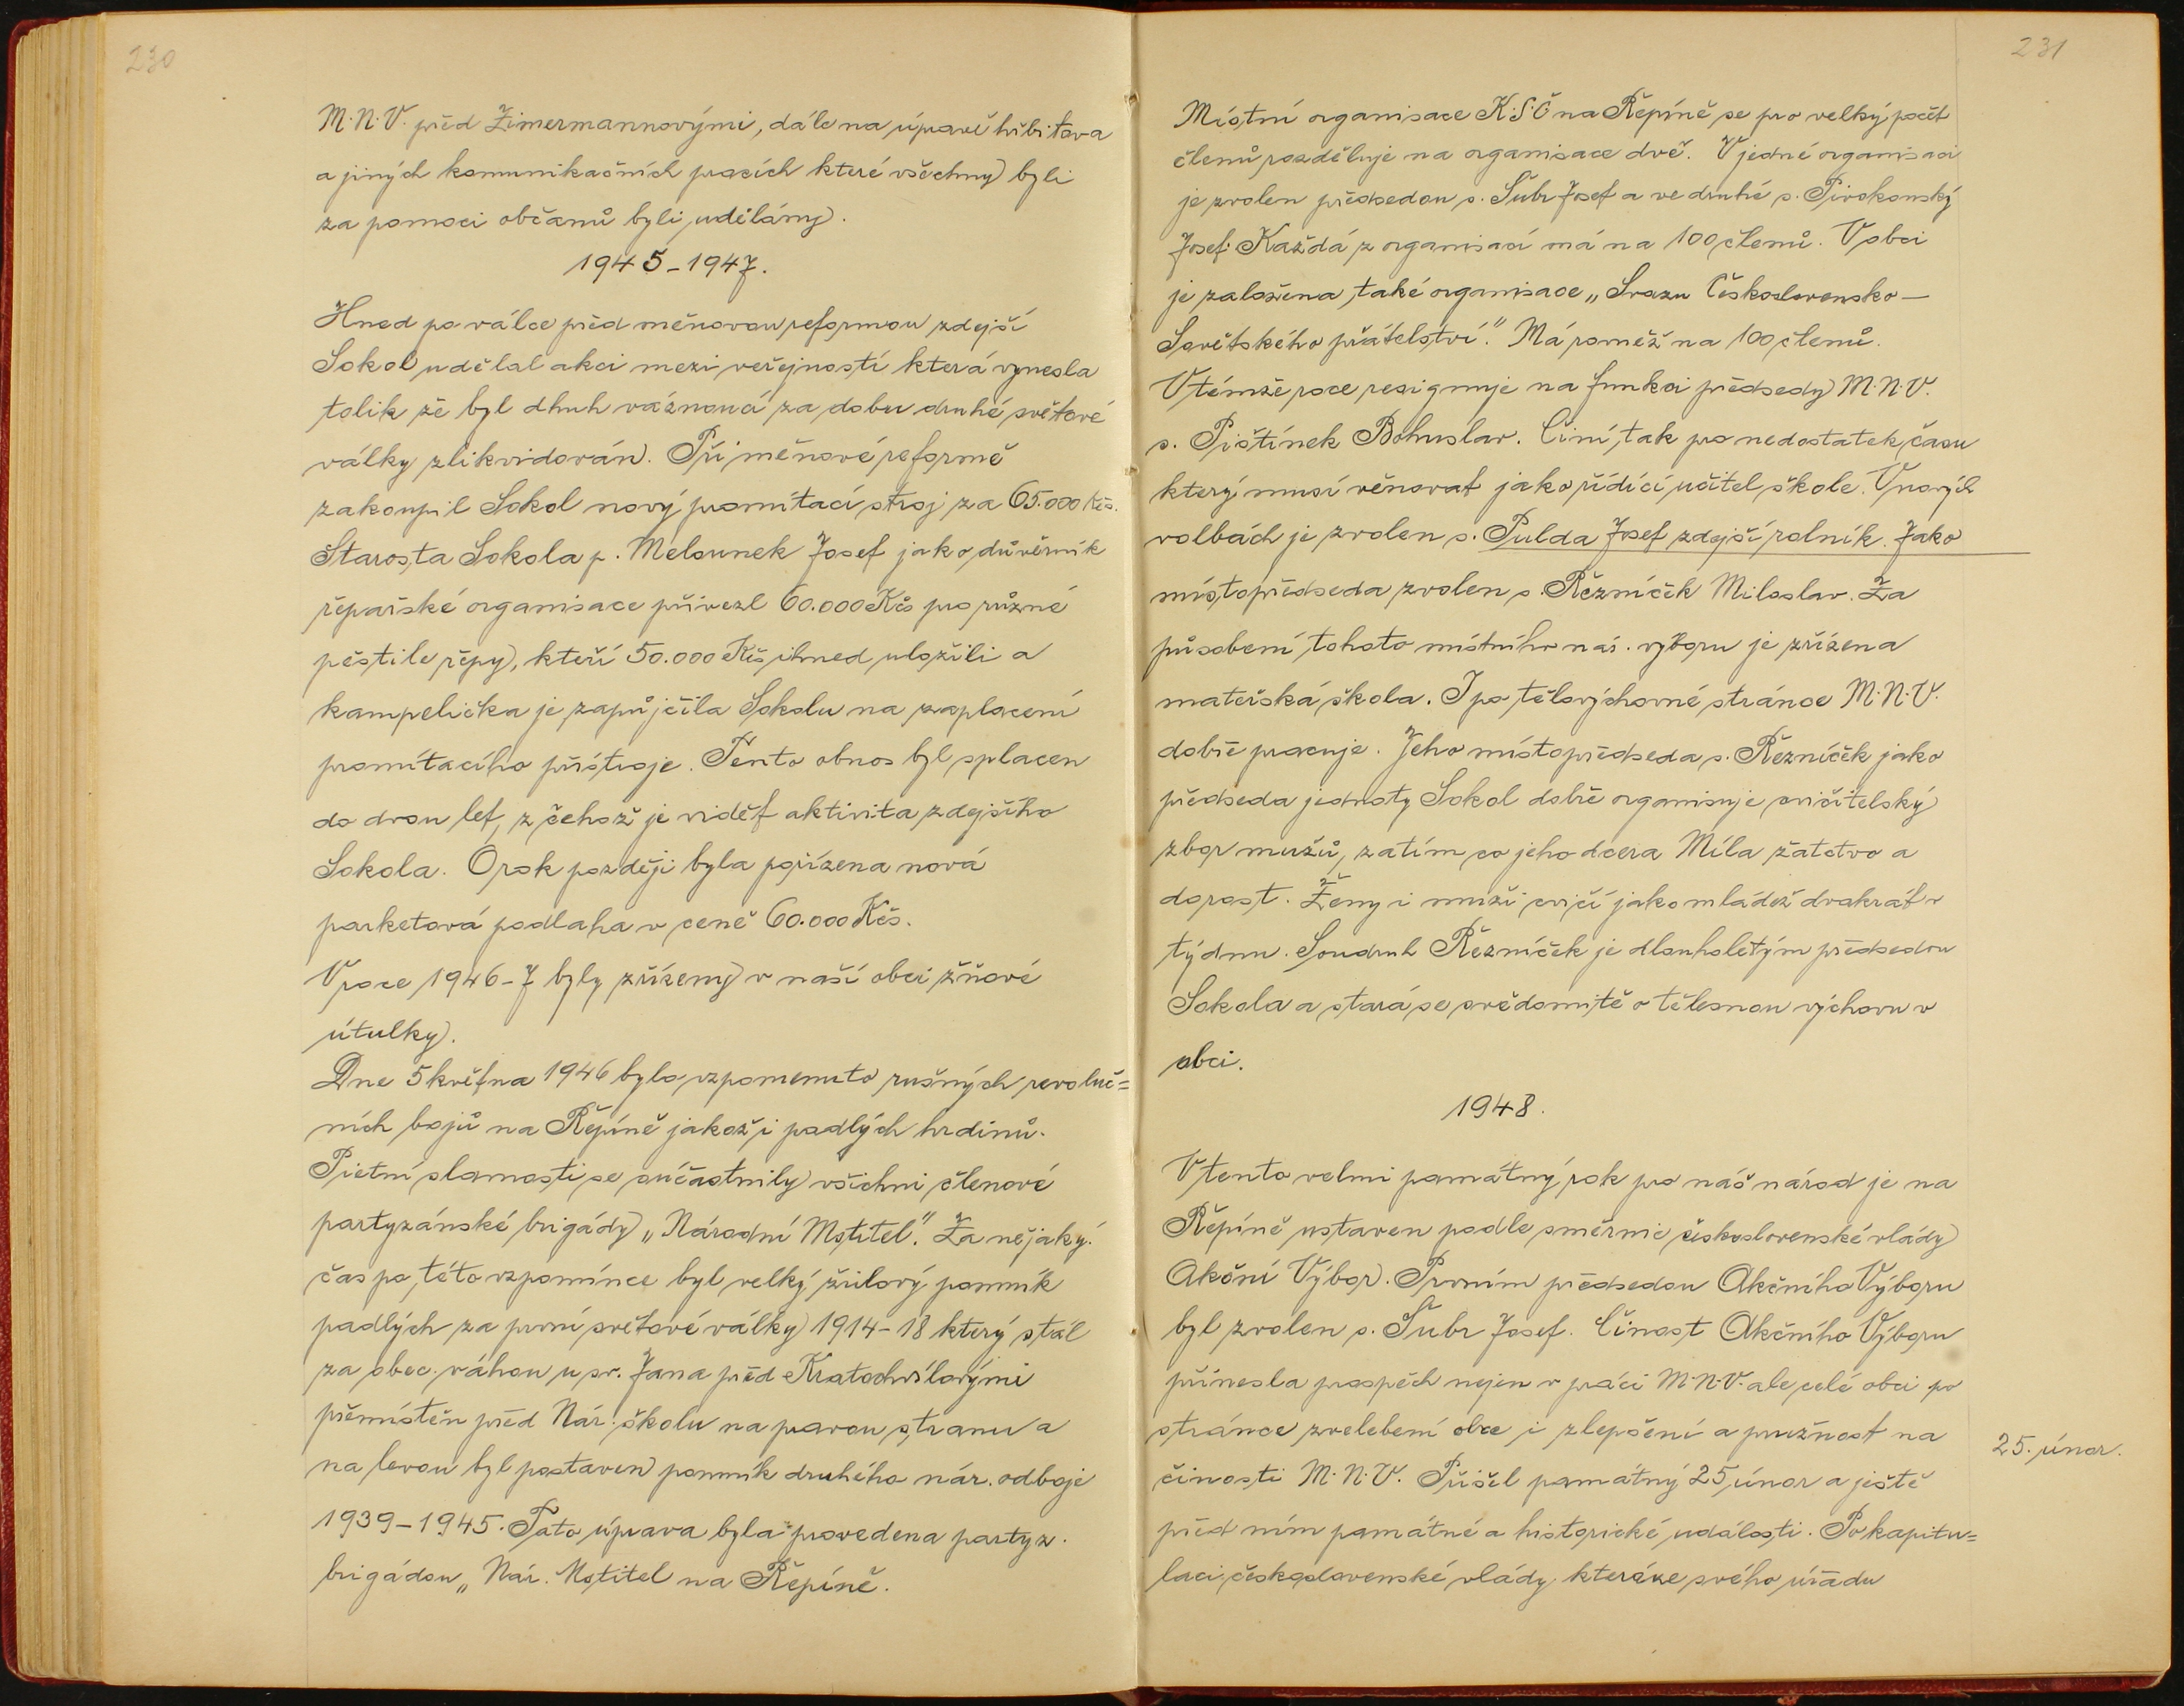 230
M.N.V. před Zimermannovými, dále na úpravě hřbitova
a jiných komunikačních pracích které všechny byli
za pomoci občanů byli udělány.
1945-1947.
Hned po válce před měnovou reformou zdejší
Sokol udělal akci mezi veřejností která vynesla
tolik že byl dhuh váznoucí za dobu druhé světové
války zlikvidován. Při měnové reformě
zakoupil Sokol nový promítací stroj za 65.000 Kčs.
Starosta Sokola p. Melounek Josef jako důvěrník
řepařské organisace přivezl 60.000 Kčs pro různé
pěstile řepy, kteří 50.000 Kčs ihned uložili a
kampelička je zapůjčila Sokolu na zaplacení
promítacího přístroje. Tento obnos byl splacen
do dvou let, z čehož je vidět aktivita zdejšího
Sokola. O rok později byla pořízena nová
parketová podlaha v ceně 60.000 Kčs.
V roce 1946-7 byly zřízeny v naší obci žňové
útulky.
Dne 5 května 1946 bylo vzpomenuto rušných revoluč=
ních bojů na Řepíně jakož i padlých hrdinů.
Pietní slavnosti se súčastnily všichni členové
partyzánské brigády „Národní Mstitel". Za nějaký
čas po této vzpomínce byl velký žulový pomník
padlých za první světové války 1914-18 který stál
za obec. váhou u sv. Jana před Kratochvílovými
přemístěn před Nár. školu na pravou stranu a
na levou byl postaven pomník druhého nár. odboje
1939-1945. Tato úprava byla provedena partyz.
brigádou „Nár. Mstitel na Řepíně.
231
Místní organisace K.S.Č na Řepíně se pro velký počet
členů rozděluje na organisace dvě. V jedné organisaci
je zvolen předsedou s. Šubr Josef a ve druhé s. Pivokonský
Josef. Každá z organisací má na 100 členů. V obci
je založena také organisace „Svazu Československo-
Sovětského přátelství." Má rovněž na 100 členů.
V témže roce resignuje na funkci předsedy M.N.V.
s. Pištínek Bohuslav. Činí tak pro nedostatek času
který musí věnovat jako řídící učitel škole. V nových
volbách je zvolen s. Pulda Josef zdejší rolník. Jako
místopředseda zvolen s. Řezníček Miloslav. Za
působení tohoto místního nár. výboru je zřízena
mateřská škola. I po tělovýchovné stránce M.N.V.
dobře pracuje. Jeho místopředseda s. Řezníček jako
předseda jednoty Sokol dobře organisuje cvičitelský
zbor mužů, zatím co jeho dcera Míla žatctvo a
dorost. Ženy i muži cvičí jako mládež dvakrát v
týdnu. Soudruh Řezníček je dlouholetým předsedou
Sokola a stará se svědomitě o tělesnou výchovu v
obci.
1948.
V tento velmi památný rok pro náš národ je na
Řepíně ustaven podle směrnic československé vlády
Akční Výbor. Prvním předsedou Akčního Výboru
byl zvolen s. Šubr Josef. Činost Akčního Výboru
přinesla prospěch nejen v práci M.N.V. ale celé obci po
stránce zvelebení obce i zlepšení a pružnost na
činosti M.N.V. Přišel památný 25 únor a ještě
25. únor.
před ním památné a historické události. Po kapitu=
laci československé vlády která ze svého úřadu